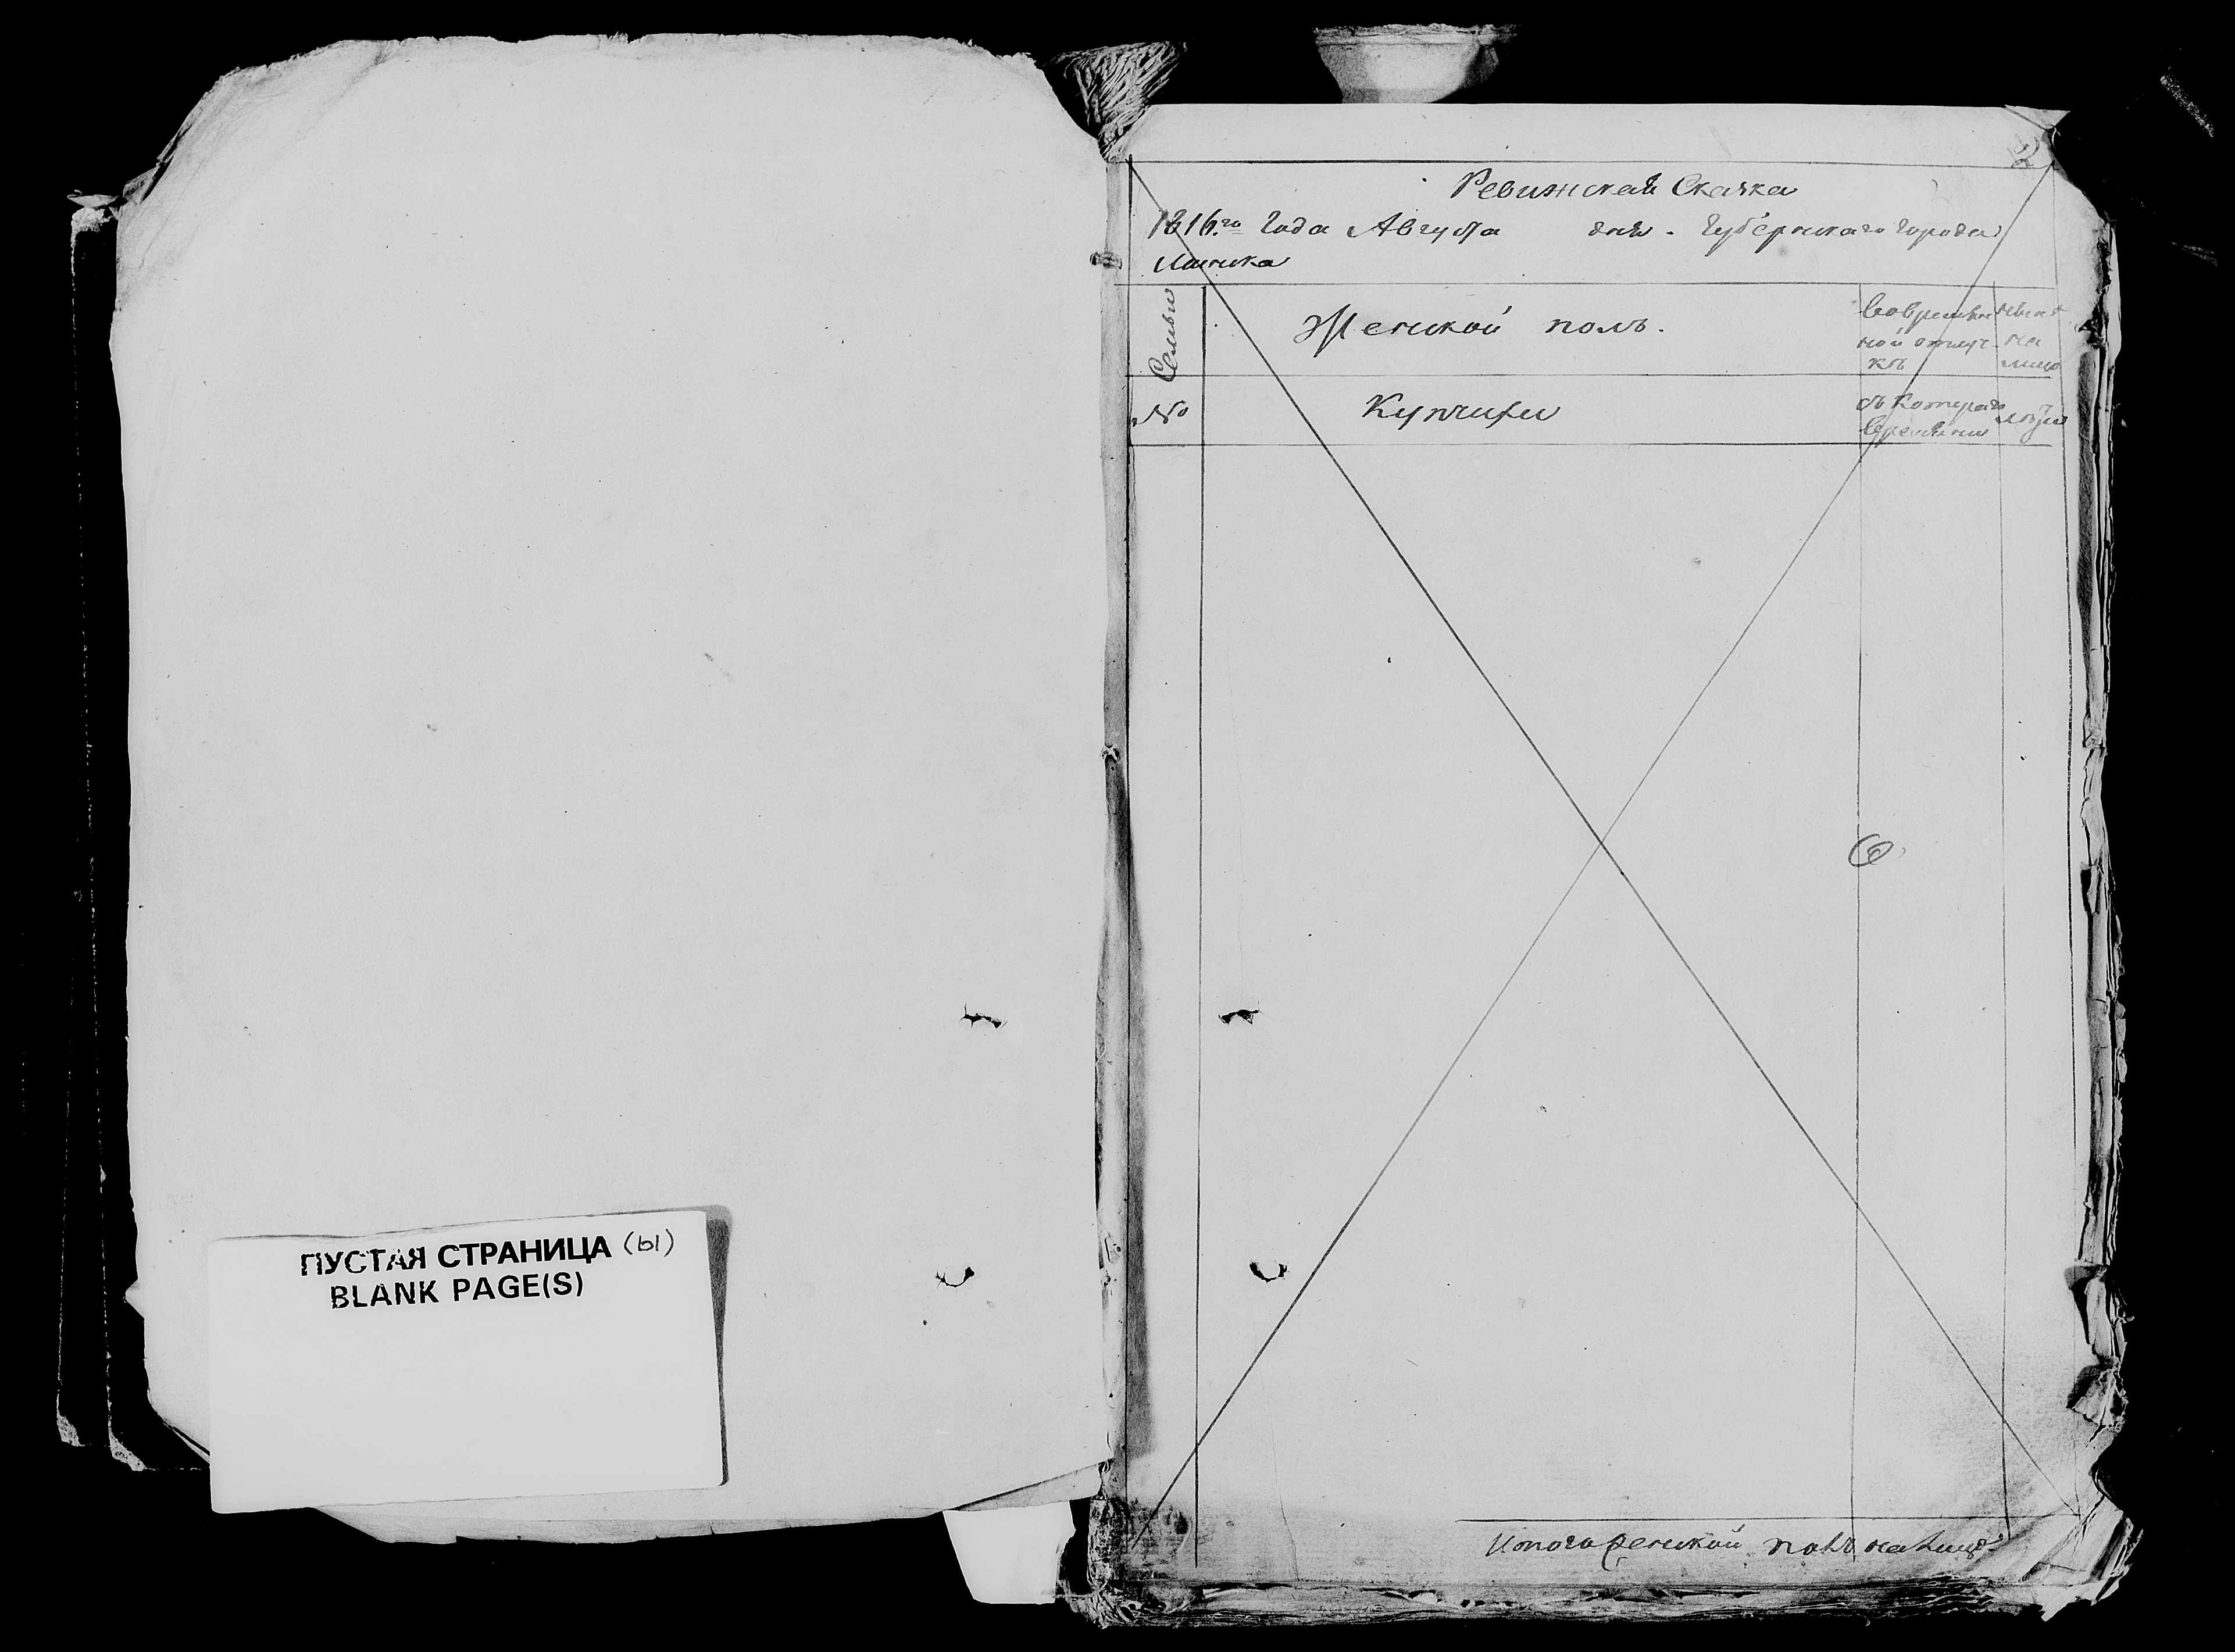 ПУСТАЯ СТРАНИЦА (ы)
BLANK PAGE(S)
2
Ревижская Сказка
1816.го Года Августа дня. Губернскаго города
Минска
Семьи
Женской полъ.
Вовремян
ной отлуч
кѣ
на
лицо
№
Купчихи
съ котораго
времяни
лѣта
6
Итого женской полъ налицо